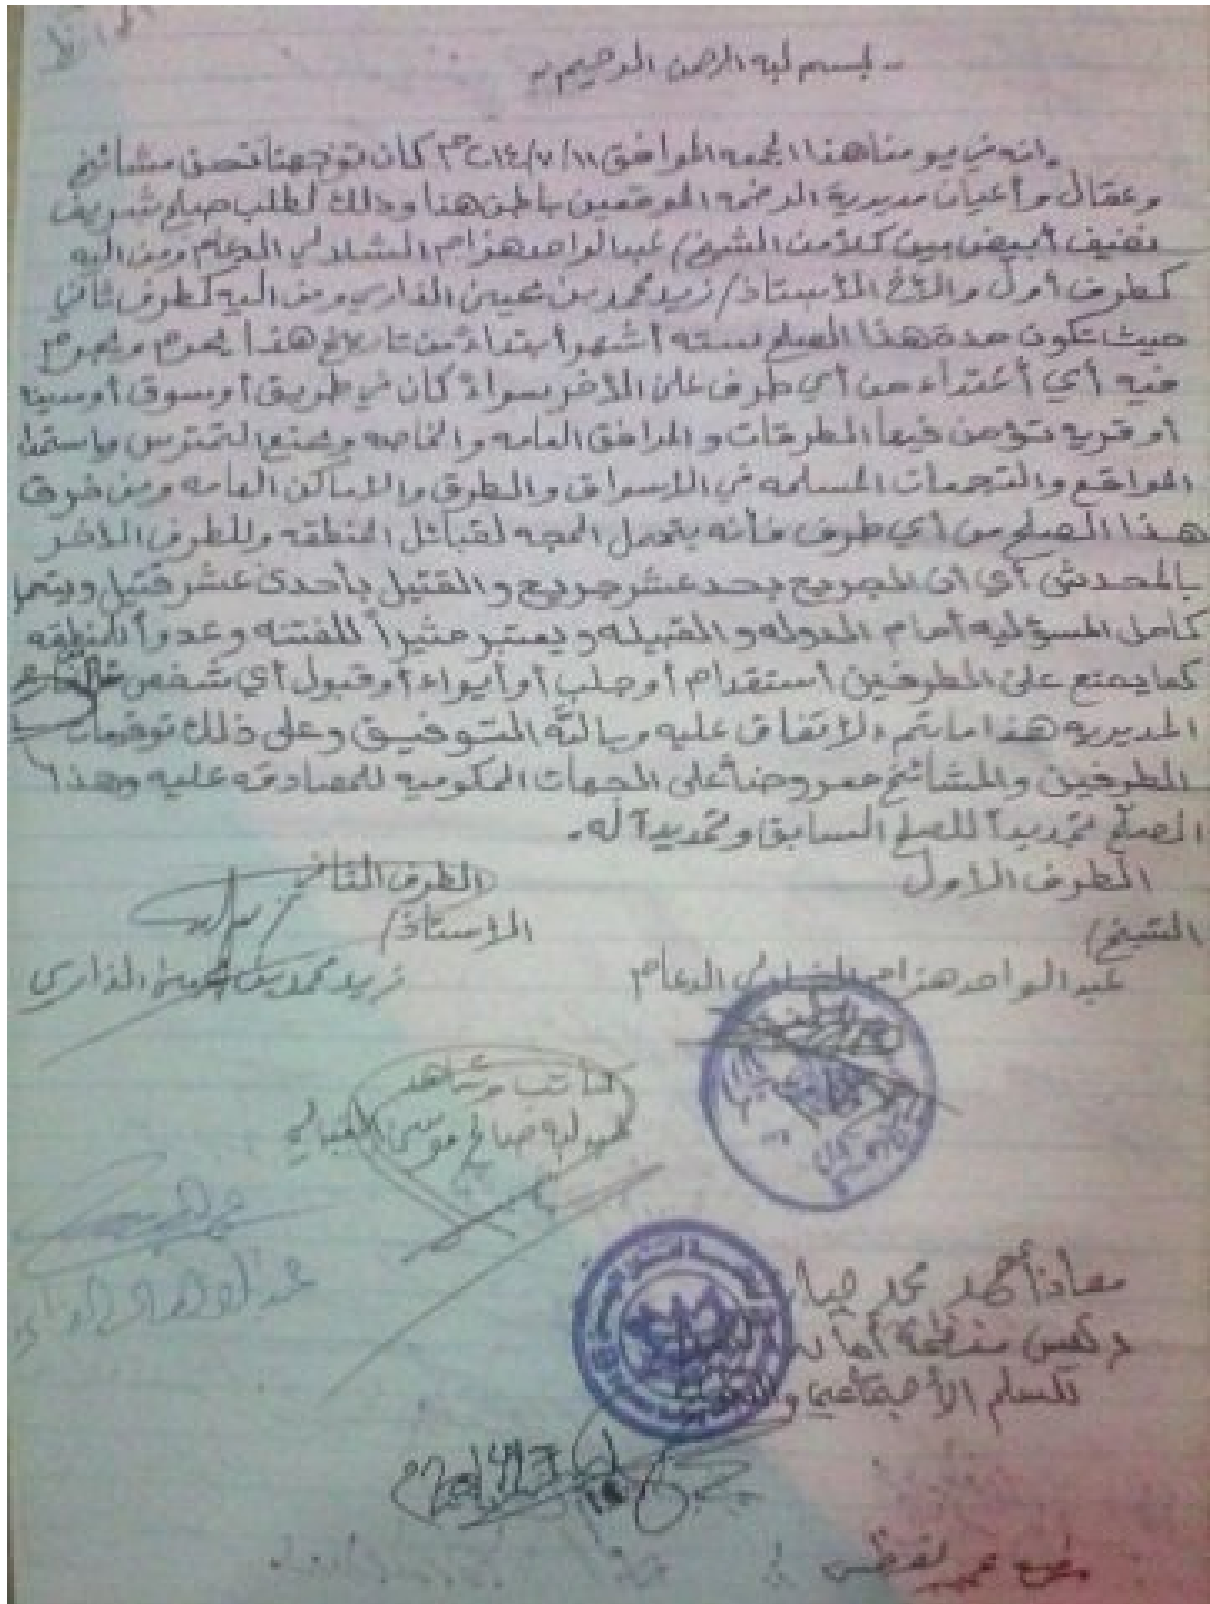 بسم الله الرحمن الرحيم
وانه في يومنا هذا الجمعه الموافق ١١/٧/٢٠١٤م كان توجهنا نحن مشائخ
وعقال وأعيان مديرية الرضمه الموقعين باطن هنا وذلك لطلب صلح شريف
نضيف أبيض بين كلاً من الشيخ/ عبدالواحد هزام الشلالي الدعام ومن اليه
كطرف أول والأخ الأستاذ/ زيد محمد بن يحيى الذاري ومن اليه كطرف ثاني
حيث تكون مدة هذا الصلح سته أشهر أبتداءً من تاريخ هذا يحرم ويجرم
فيه أي أعتداء من أي طرف على الاخر سواءً كان في طريق أو سوق أو سيله
أو قريه تؤمن فيها الطرقات والمرافق العامه والخاصه ويمنع التمترس
المواقع والتجمعات المسلحه في الاسواق والطرق والاماكن العامه ومن خرق
هذا الصلح من أي طرف فأنه يتحمل الحجه لقبائل المنطقه وللطرف الاخر
بالمحدش أي ان الجريح بحدعشر جريح والقتيل بأحدى عشر قتيل ويتحمل
كامل المسؤليه أمام الدوله والقبيله ويعتبر مثيراً للفتنه وعدواً للمنطقه
كما يمنع على الطرفين أستقدام أو جلب أو أيواء أو قبول أي شخص من خارج
المديريه هذا ماتم الاتفاق عليه وبالله التوفيق وعلى ذلك توقيعات
الطرفين والمشائخ معروضاً على الجهات الحكوميه للمصادقه عليه وهذا
الصلح تجديداً للصلح السابق وتمديداً له.
الطرف الاول
الطرف الثاني
الشيخ/
الاستاذ/
عبدالواحد هزام الشلالي الدعام
زيد محمد بن يحيى الذاري
كاتب وشاهد
عبدالله صالح موسى
معاذ أحمد محمد
رئيس منظمة
للسلم الأجتماعي